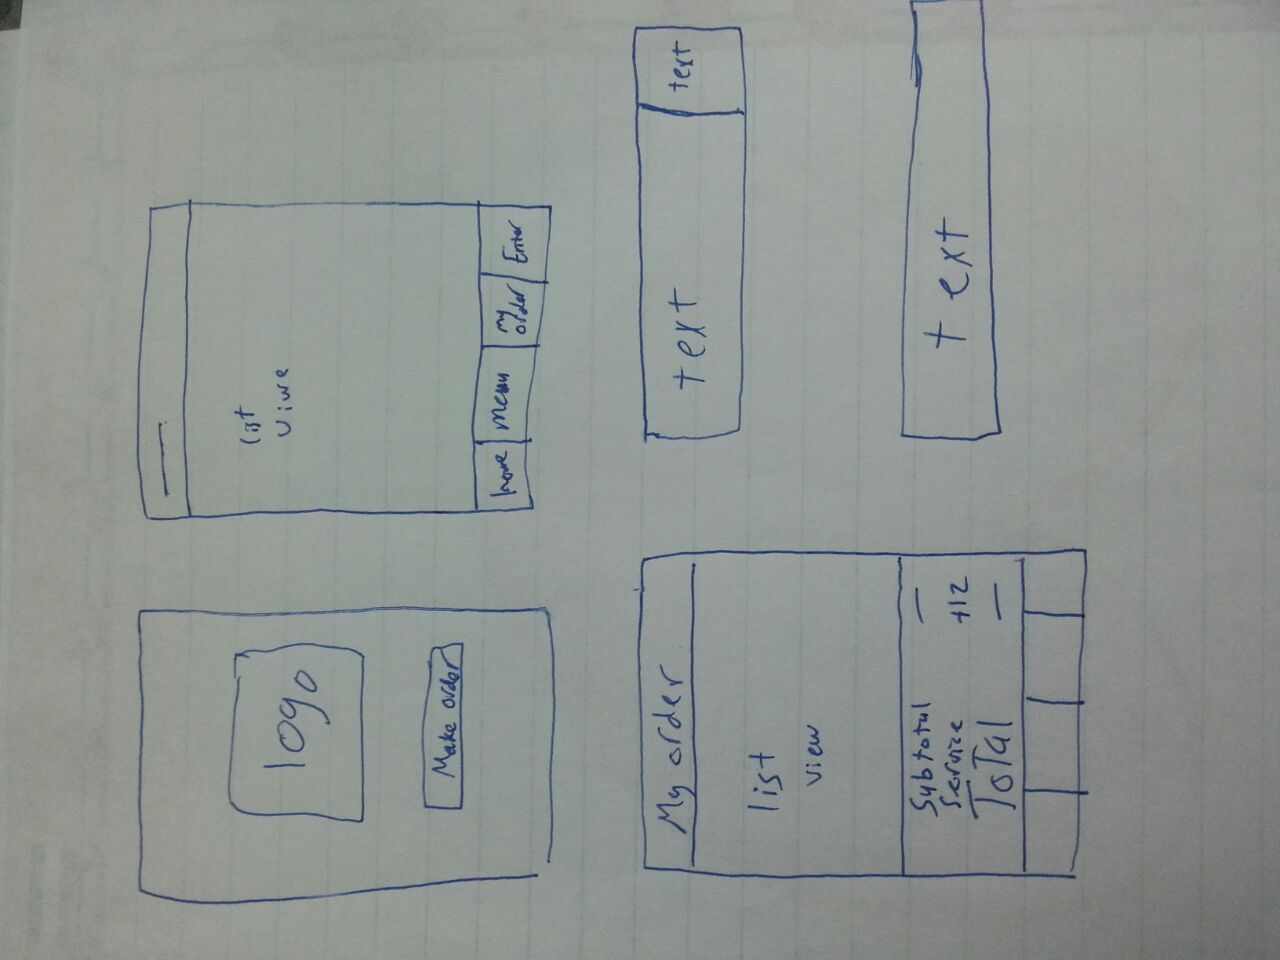 logo
Make order
list
viwe
home
menu
my
order
Enter
My order
list
view
Subtotal —
Service +12
ToTal —
text
text
text